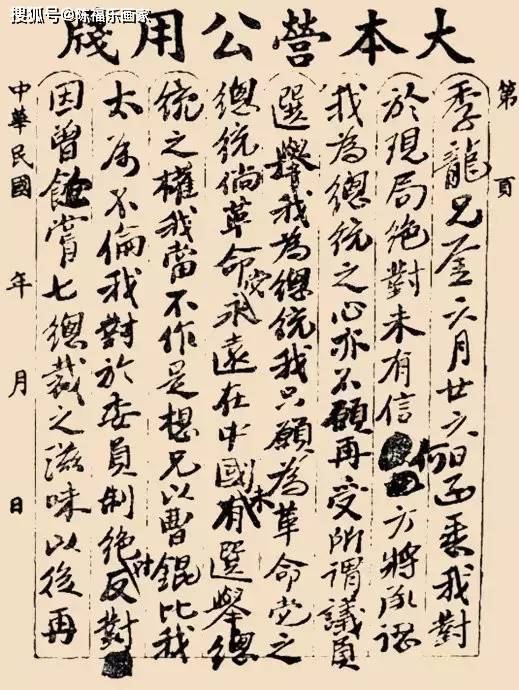 搜狐号@陈福乐画家
大本營公用牋
第 頁
季龍兄鑒六月廿六日函悉我對
於現局絕對未有信何方將承認
我為總統之心亦不願再受所謂議員
選舉我為總統我只願為革命党之
總統倘革命党永遠在中國未有選舉總
統之權我當不作是想兄以曹錕比我
太為不倫我對於委員制絕反對
因曾飽嘗七總裁之滋味以後再
中華民國 年 月 日